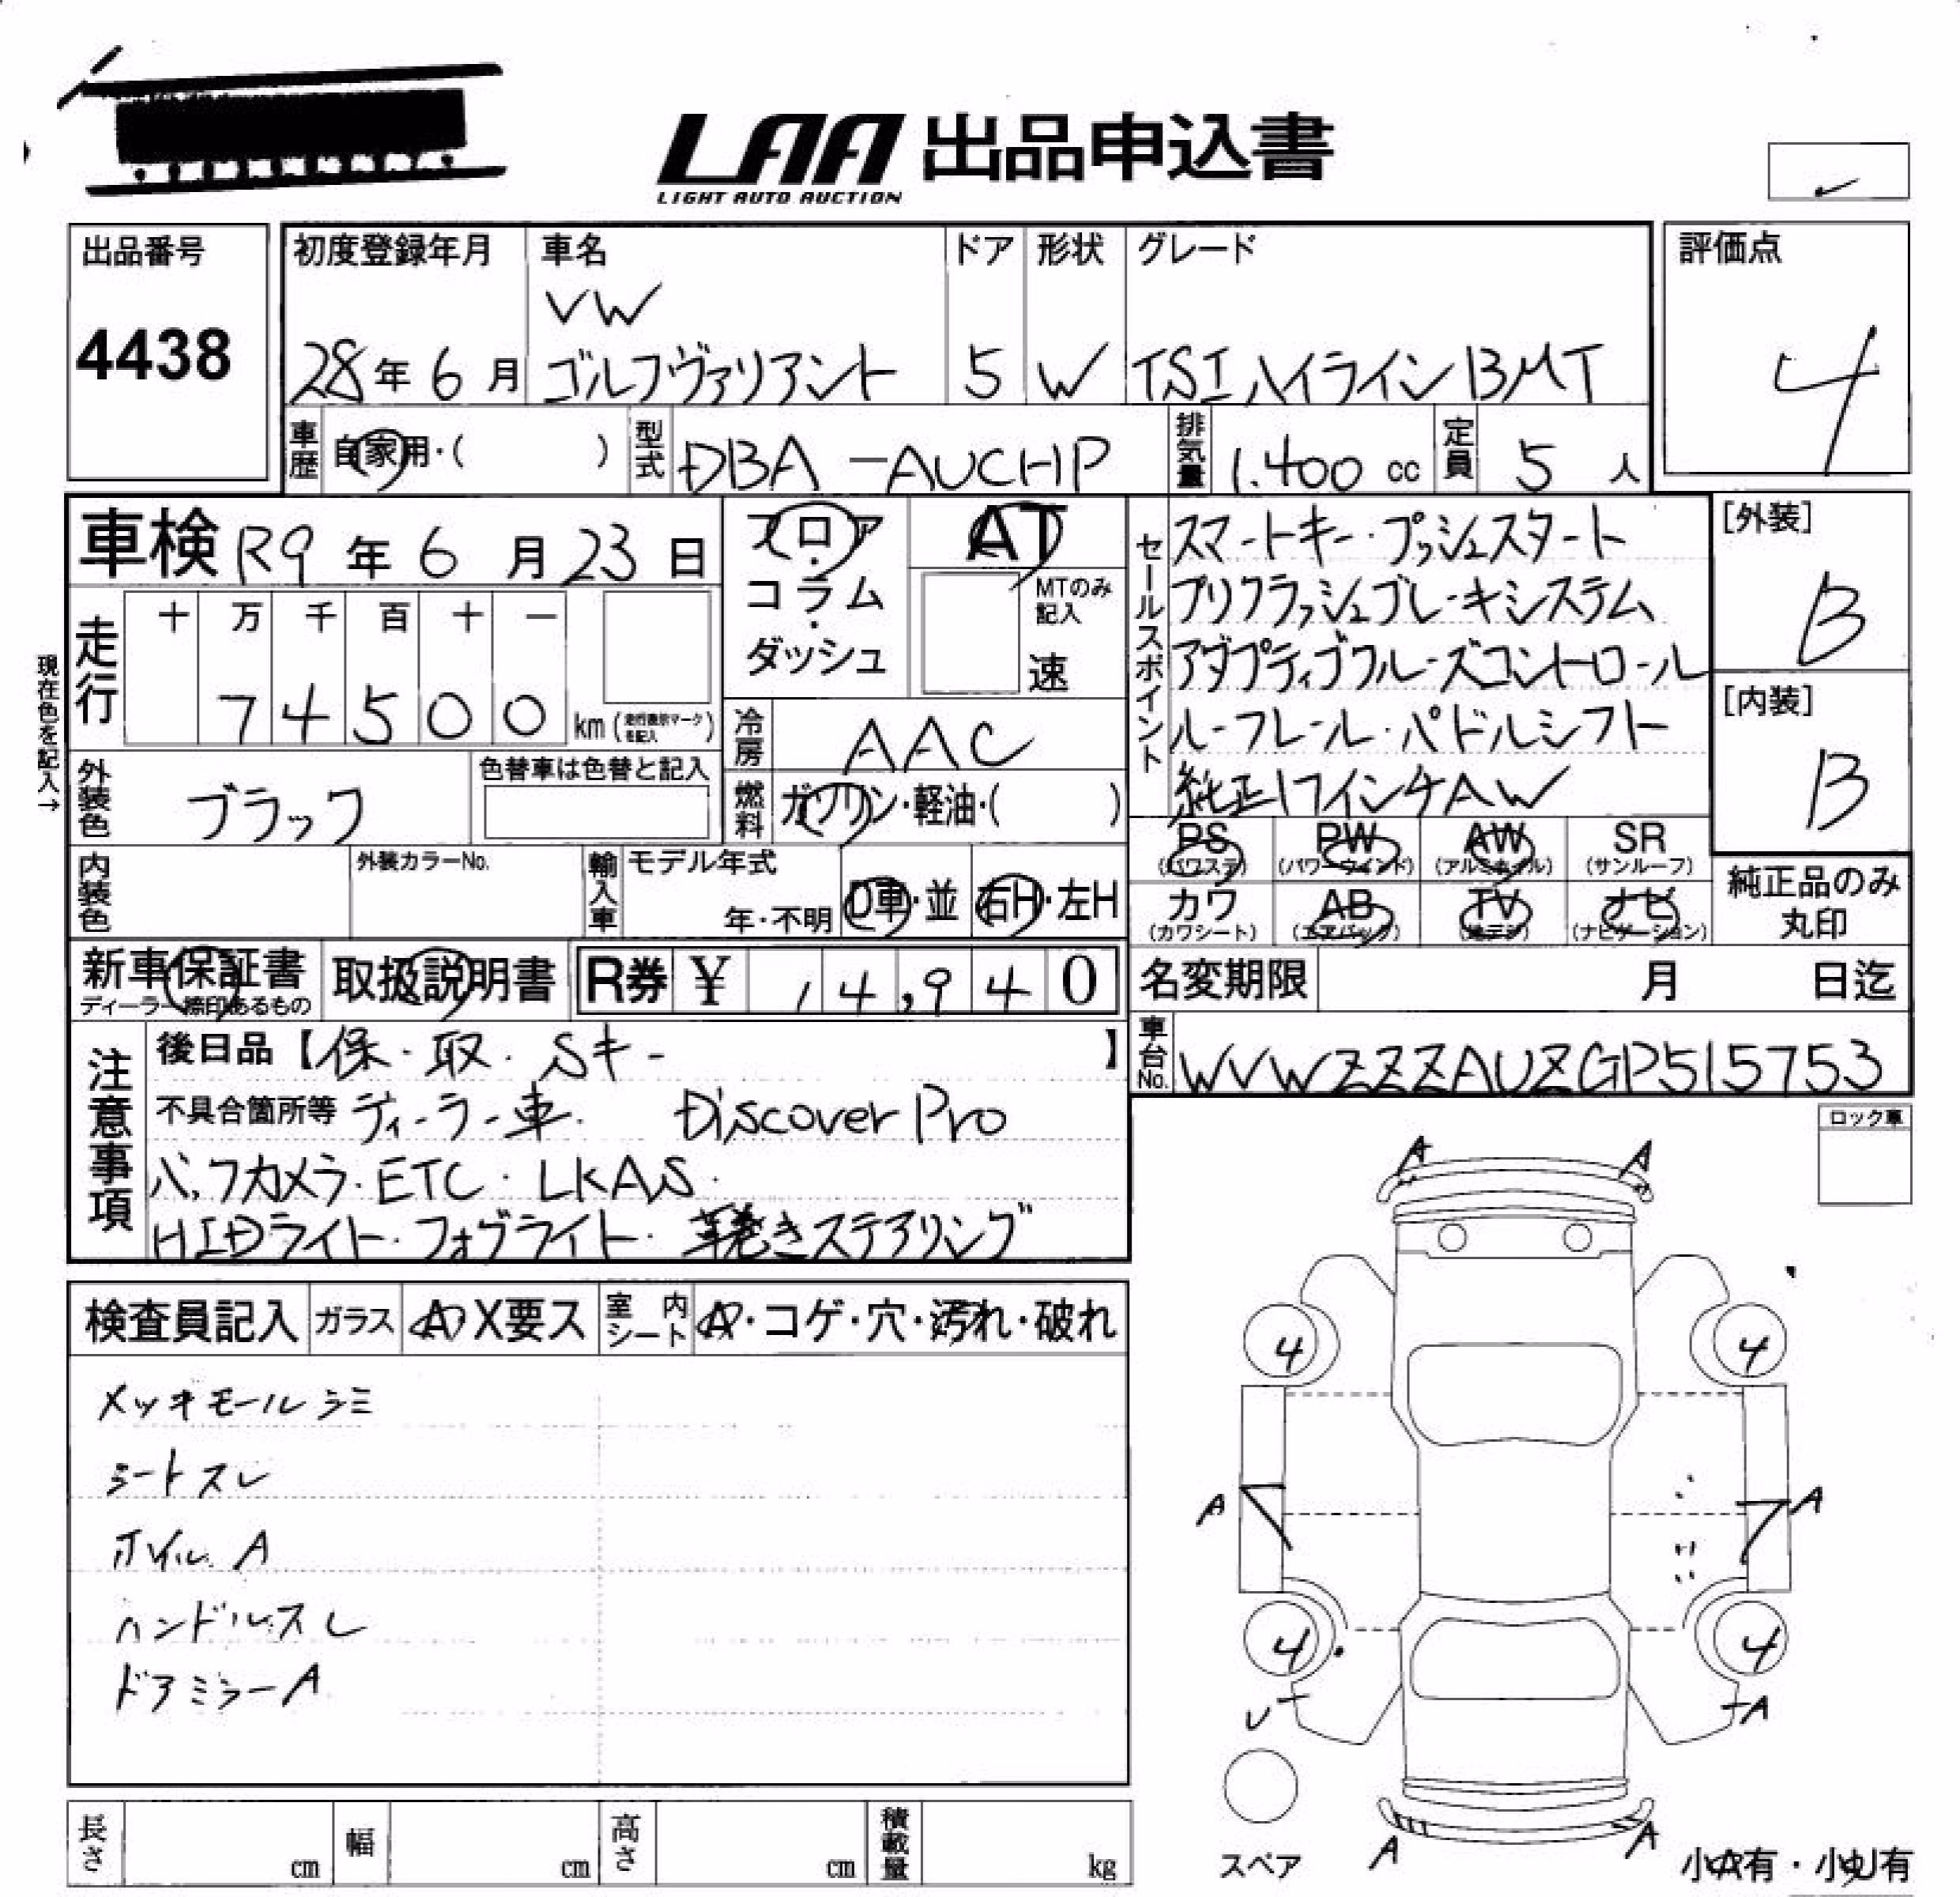 LAA 出品申込書
LIGHT AUTO AUCTION
出品番号
4438
初度登録年月
28年6月
車名
VW
ゴルフヴァリアント
ドア
5
形状
W
グレード
TSIハイラインBMT
評価点
4
車歴 自家用・( )
型式 DBA-AUCHP
排気量 1.400 cc
定員 5 人
車検 R9年6月23日
フロア・コラム・ダッシュ
AT
MTのみ記入
速
セールスポイント
スマートキー・プッシュスタート
プリクラッシュブレーキシステム
アダプティブクルーズコントロール
ルーフレール・パドルシフト
純正17インチAW
[外装]
B
[内装]
B
現在色を記入→
走行
十 万 千 百 十 一
7 4 5 0 0 km (走行表示マークを記入)
冷房 AAC
外装色 ブラック
色替車は色替と記入
燃料 ガソリン・軽油・( )
内装色
外装カラーNo.
輸入車
モデル年式
年・不明
D車・並
右H・左H
PS (パワステ)
PW (パワーウインド)
AW (アルミホイル)
SR (サンルーフ)
カワ (カワシート)
AB (エアバック)
TV (地デジ)
ナビ (ナビゲーション)
純正品のみ丸印
新車保証書
ディーラー締印あるもの
取扱説明書
R券 ¥ 14,940
名変期限 月 日迄
車台No. WVWZZZAUZGP515753
注意事項
後日品【保・取・Sキー】
不具合箇所等 ディーラー車. Discover Pro
バックカメラ・ETC・LKAS・
HIDライト・フォグライト・革巻きステアリング
ロック車
検査員記入
ガラス A X要ス
室内シート A・コゲ・穴・汚れ・破れ
メッキモールシミ
シートスレ
ホイルA
ハンドルスレ
ドアミラーA
A A
4 4
A A
4 4
U A
A A
スペア
小A有・小U有
長さ cm
幅 cm
高さ cm
積載量 kg